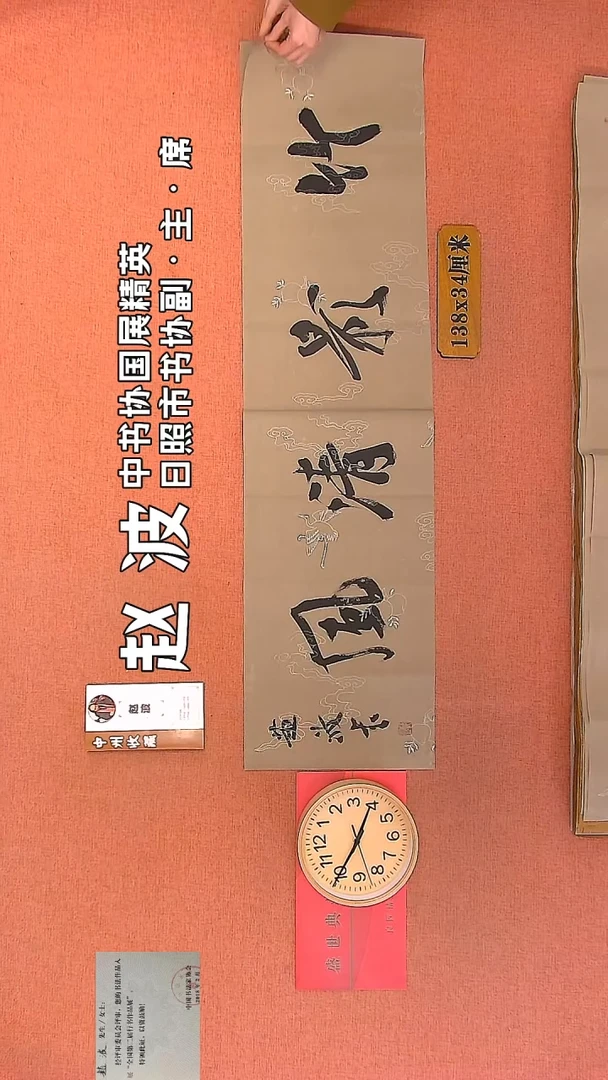 赵波
中书协国展精英
日照市书协副·主·席
138x34厘米
清風
趙波书
赵波
中州收藏
12
1
2
3
4
5
6
7
8
9
10
11
盛世典
赵波 先生/女士:
经评审委员会评审,您的书法作品入
展“全国第二届行书作品展”,
特颁此证,以资鼓励!
中国书法家协会